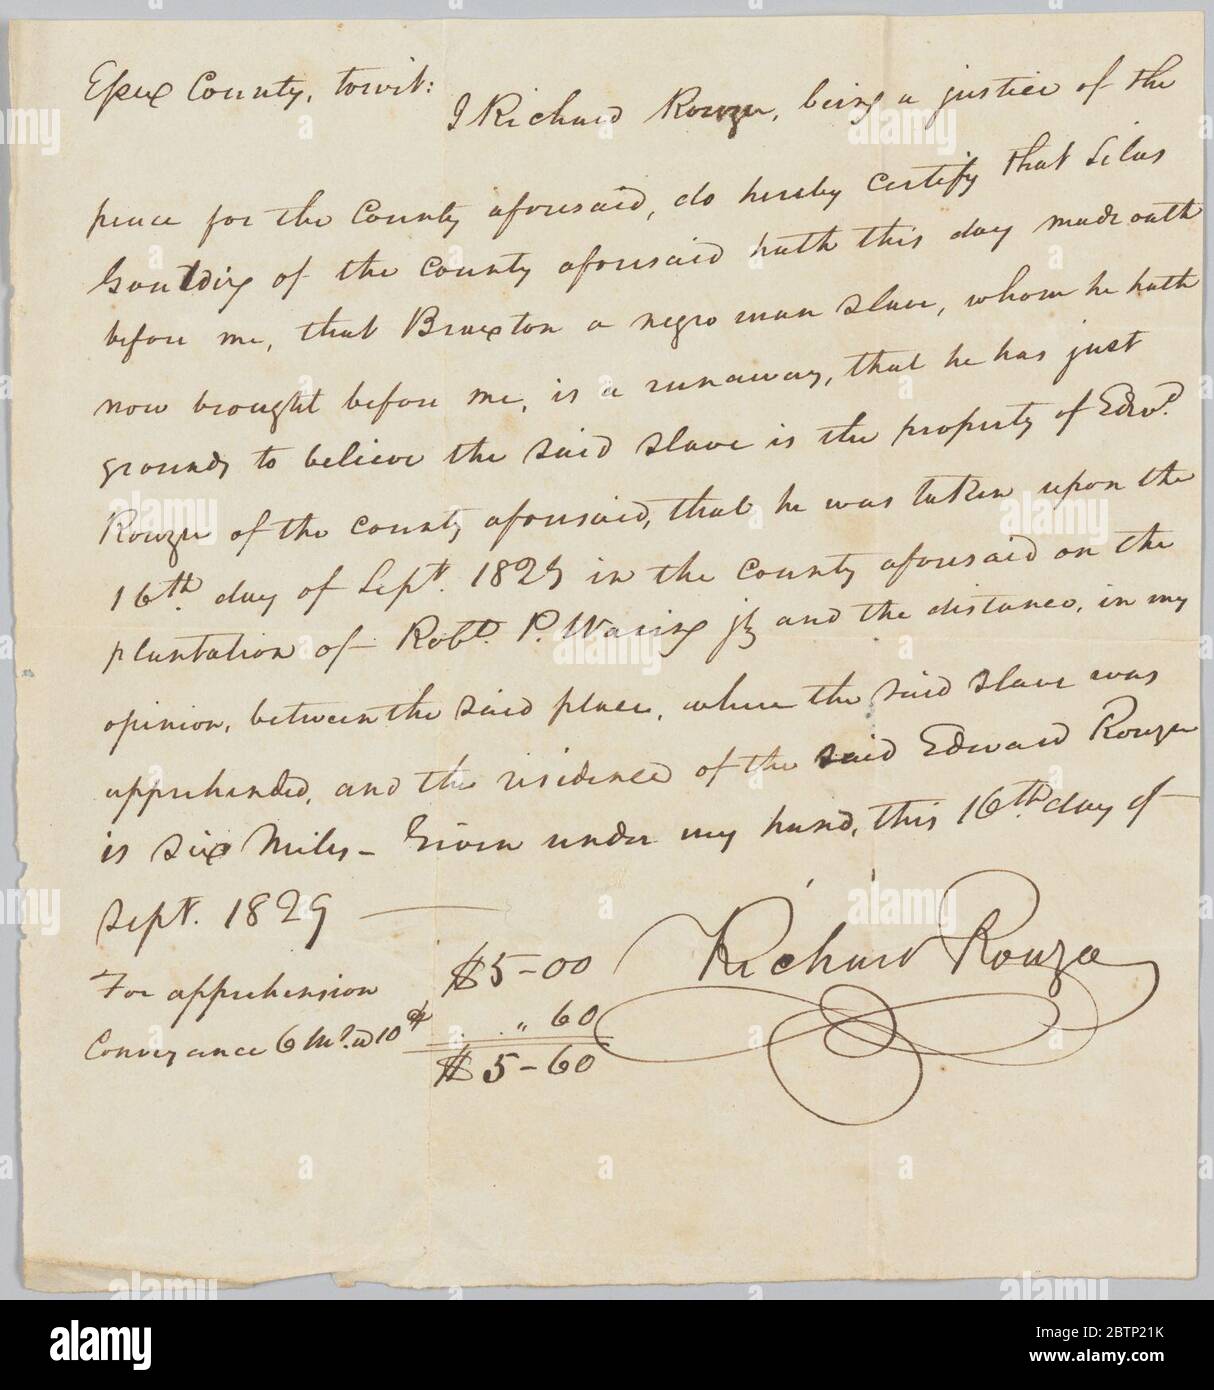 Essex County, towit:
I Richard Rouzee, being a justice of the
peace for the County aforesaid, do hereby certify that Silas
Gouldin of the county aforesaid hath this day made oath
before me, that Braxton a negro man slave, whom he hath
now brought before me, is a runaway, that he has just
grounds to believe the said slave is the property of Edwd.
Rouzee of the county aforesaid, that he was taken upon the
16th. day of Sept. 1829 in the county aforesaid on the
plantation of Robt. P. Waring jr and the distance, in my
opinion, between the said place, where the said slave was
apprehended, and the residence of the said Edward Rouzee
is six Miles - Given under my hand, this 16th day of
Sept. 1829
Richard Rouzee
For apprehension $5-00
Conveyance 6 Ms. a 10 cts .. " 60
$5-60
alamy
Image ID: 2BTP21K
www.alamy.com